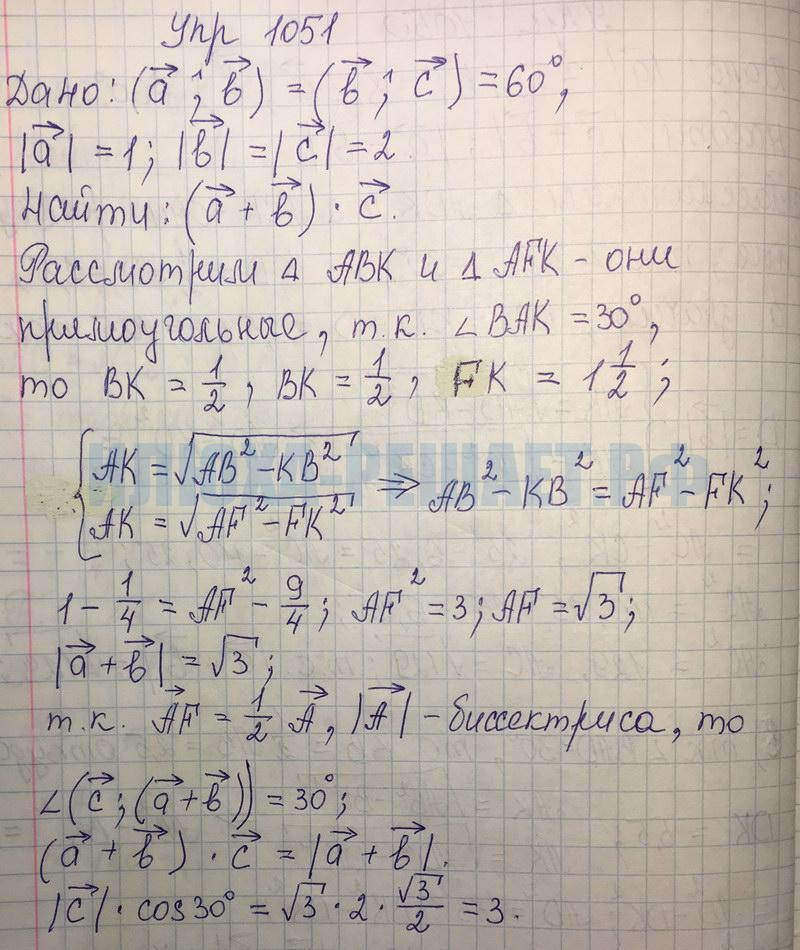 Упр 1051
Дано: (a⃗ ^; b⃗) = (b⃗ ^; c⃗) = 60°,
|a⃗| = 1; |b⃗| = |c⃗| = 2.
Найти: (a⃗ + b⃗) · c⃗.
Рассмотрим Δ ABK и Δ AFK - они
прямоугольные, т.к. ∠BAK = 30°,
то BK = 1/2, BK = 1/2, FK = 1 1/2;
{ AK = √(AB² - KB²)
AK = √(AF² - FK²) ⇒ AB² - KB² = AF² - FK²;
ИЛЮХА-РЕШАЕТ.РФ
1 - 1/4 = AF² - 9/4; AF² = 3; AF = √3;
|a⃗ + b⃗| = √3;
т.к. AF⃗ = 1/2 A⃗, |A⃗| - биссектриса, то
∠(c⃗; (a⃗ + b⃗)) = 30°;
(a⃗ + b⃗) · c⃗ = |a⃗ + b⃗| ·
|c⃗| · cos30° = √3 · 2 · √3/2 = 3.